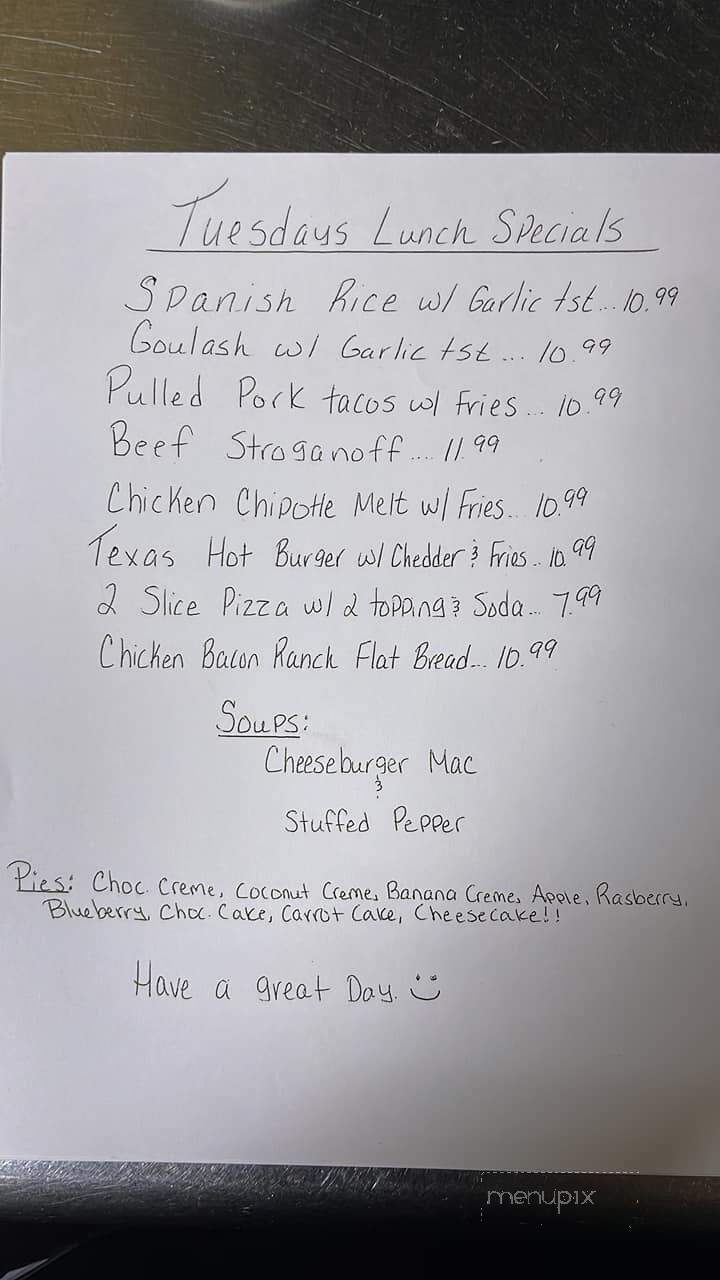 Tuesdays Lunch Specials
Spanish Rice w/ Garlic tst... 10.99
Goulash w/ Garlic tst... 10.99
Pulled Pork tacos w/ Fries... 10.99
Beef Stroganoff.... 11.99
Chicken Chipotle Melt w/ Fries.. 10.99
Texas Hot Burger w/ Chedder & Fries.. 10.99
2 Slice Pizza w/ 2 topping & Soda... 7.99
Chicken Bacon Ranch Flat Bread... 10.99
Soups:
Cheeseburger Mac
&
Stuffed Pepper
Pies: Choc. Creme, Coconut Creme, Banana Creme, Apple, Rasberry,
Blueberry, Choc. Cake, Carrot Cake, Cheesecake!!
Have a great Day. :)
menupix